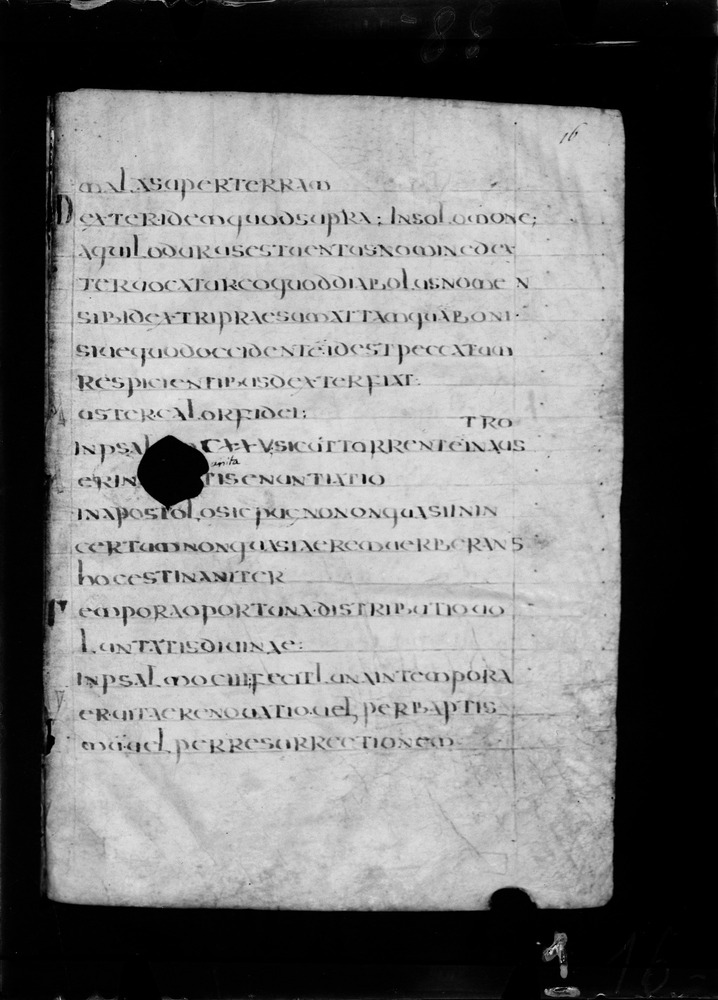 16
malasuperterram
Dexteridemquodsupra; Insolomone;
aquilodurusestuentusnominedex
teruocatureoquoddiabolusnomen
sibidextripraesumattamquaboni·
siuequodoccidenteidestpeccatum
respicientibusdexterfiat:
austercalorfidei:
tro
inpsal cxxvsicuttorrenteinaus
anita
erin tisenuntiatio
inapostolosicpugnononquasiinin
certumnonquasiaeremuerberans
hocestinaniter
emporaoportuna·distributiouo
luntatisdiuinae:
inpsalmociiifecitlunaintempora
eruitaerenouatiouelperbaptis
mauelperresurrectionem